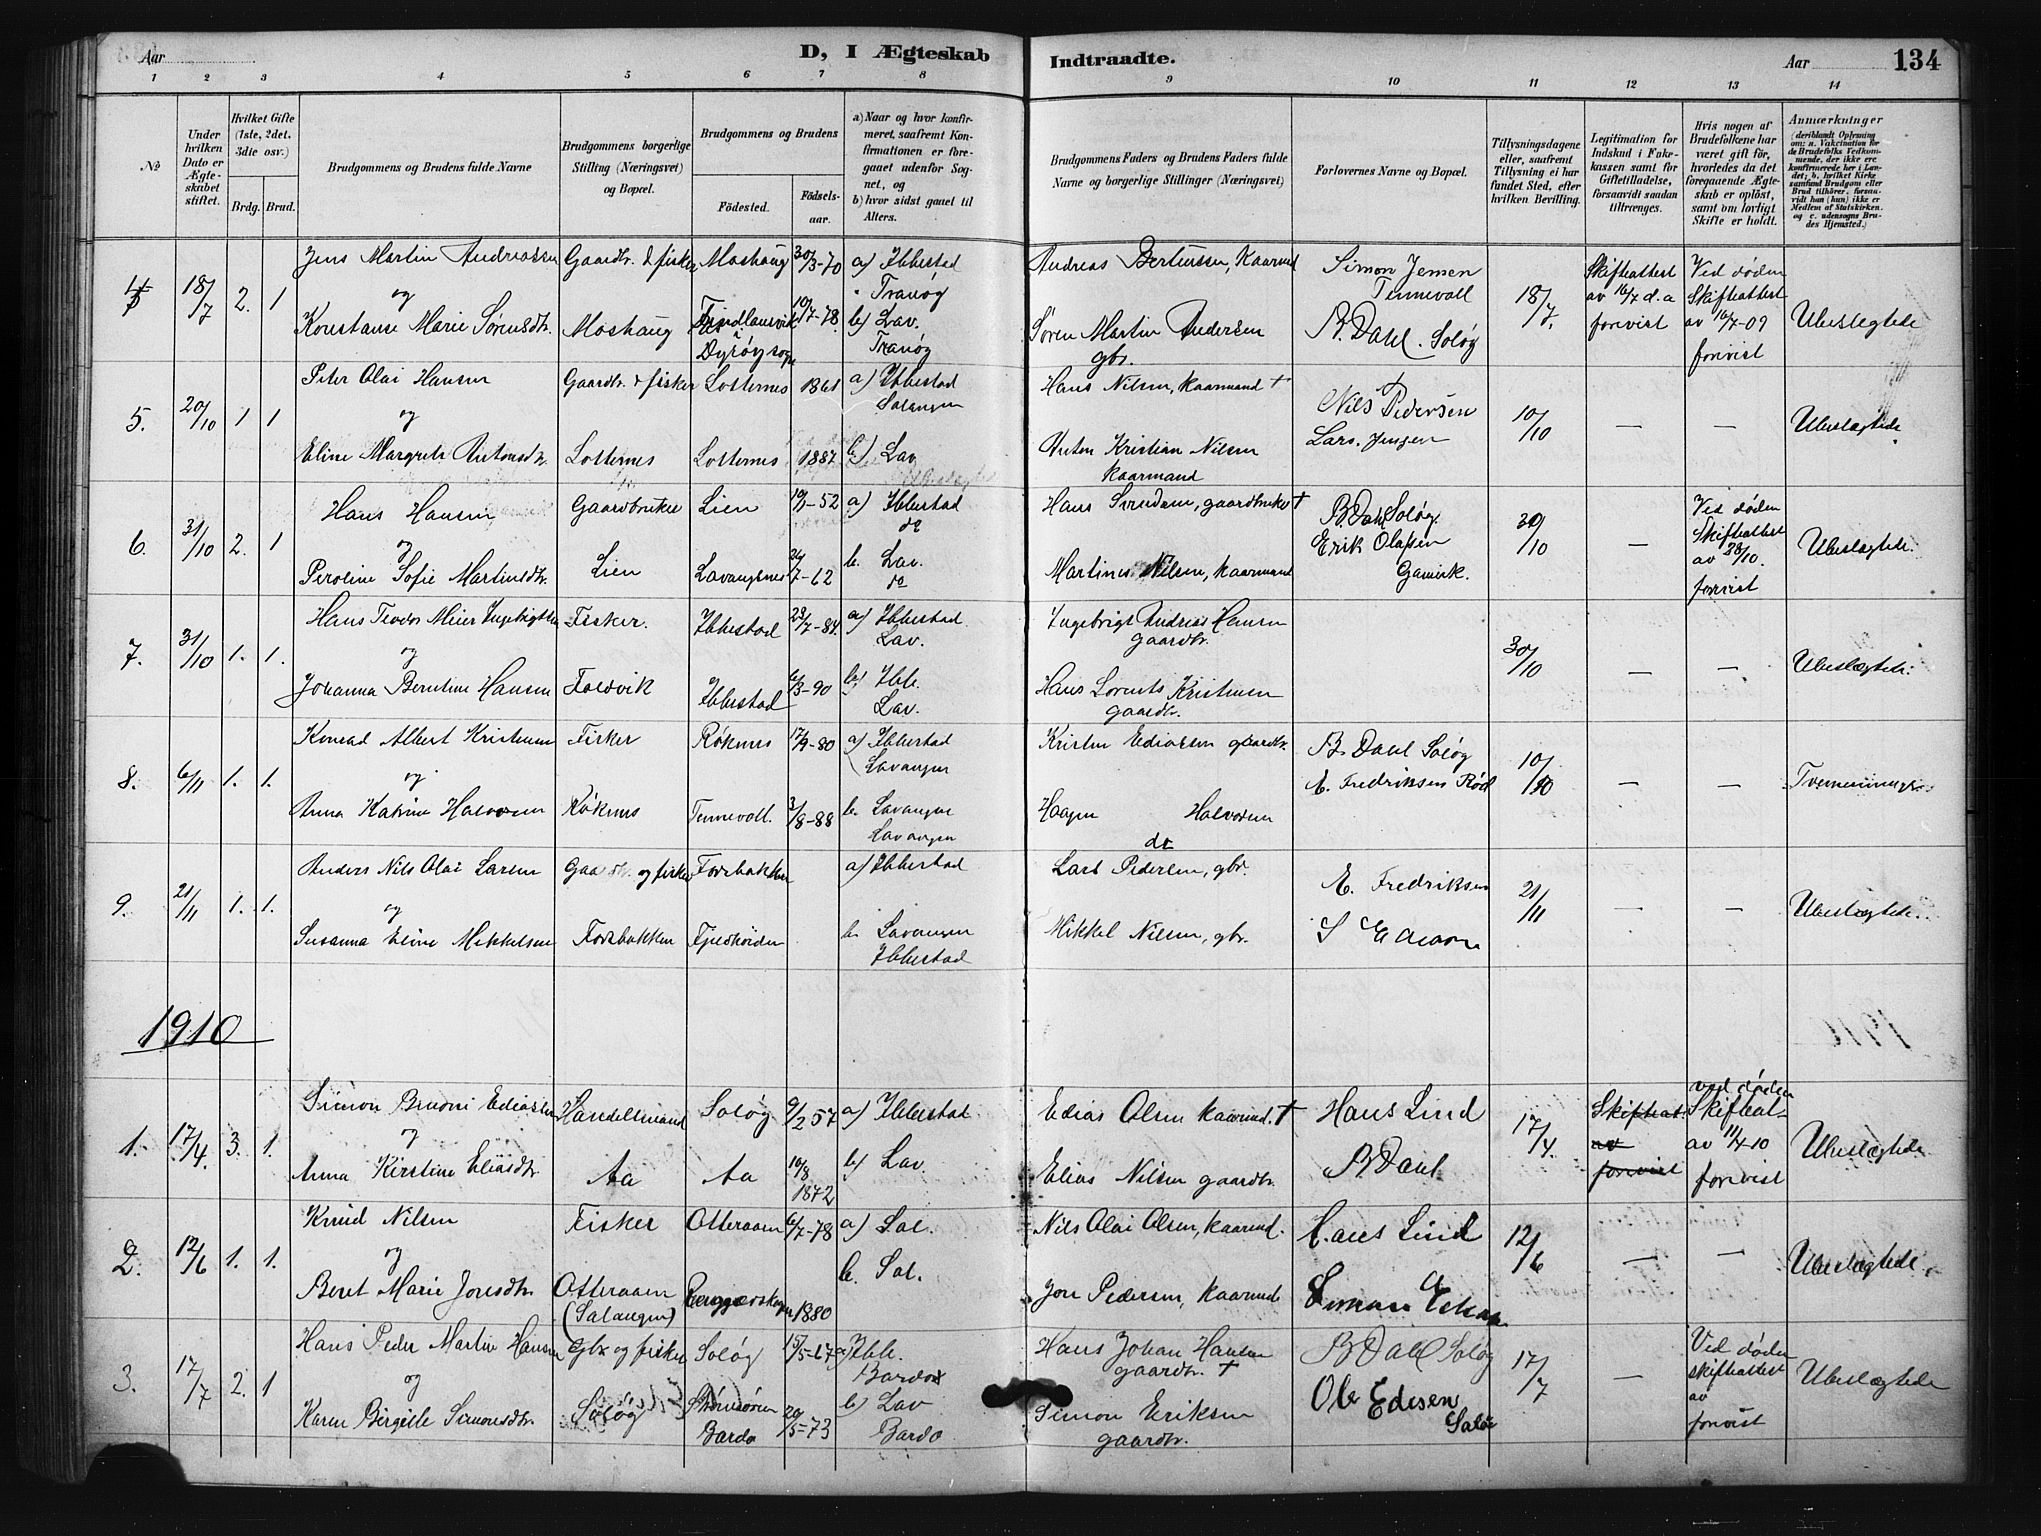 Aar
D, I Ægteskab
Indtraadte.
Aar
134
1 2 3 4 5 6 7 8 9 10 11 12 13 14
№
Under hvilken Dato er Ægteskabet stiftet.
Hvilket Gifte (1ste, 2det, 3die osv.)
Brdg. Brud.
Brudgommens og Brudens fulde Navne
Brudgommens borgerlige Stilling (Næringsvei) og Bopæl.
Brudgommens og Brudens
Födested.
Födselsaar.
a) Naar og hvor konfirmeret, saafremt Konfirmationen er foregaaet udenfor Sognet, og
b) hvor sidst gaaet til Alters.
Brudgommens Faders og Brudens Faders fulde Navne og borgerlige Stillinger (Næringsvei)
Forlovernes Navne og Bopæl.
Tillysningsdagene eller, saafremt Tillysning ei har fundet Sted, efter hvilken Bevilling.
Legitimation for Indskud i Enkekassen samt for Giftetilladelse, forsaavidt saadan tiltrænges.
Hvis nogen af Brudefolkene har været gift för, hvorledes da det foregaaende Ægteskab er oplöst, samt om lovligt Skifte er holdt.
Anmærkninger
4 18/7 2. 1 Jens Martin Andreassen Gaardbr. & fisker Moshaug 30/3-70 a) Ibbestad Andreas Bertiussen, Kaarmd Simon Jensen Tennevoll 18/7. Skifteattest av 16/7 d.a forevist Ved døden Skifteattest av 16/7-09 forevist Ubeslegtede
og
" Tranøy
Konstanse Marie Sørensdtr. Moshaug Dyrøy sogn 10/7-78 b) Lav. Tranøy Søren Martin Andersen gbr. B. Dahl. Soløy
5. 20/10 1 1 Peter Olai Hansen Gaardbr. & fisker Lotternes 1861 a) Ibbestad Salangen Hans Nilsen, kaarmand † Nils Pedersen 10/10 — — Ubeslegtede
og
Eline Margrete Antonsdtr. Lotternes Lotternes 1887 b) Lav Anton Kristian Nilsen kaarmand Lars Jensen
6. 31/10 2. 1 Hans Hansen Gaardbruker Lien 52 a) Ibbestad do Hans Svendsen, gaardbruker † B Dahl Soløy. 30/10 — Ved døden Skifteattest av 28/10. forevist Ubeslegtede.
og
Peroline Sofie Martinsdtr. Lien Lavangsnes 26/7-62 b. Lav. do Martines Nilsen, kaarmand Erik Olafsen Gamvik.
7. 31/10 1. 1. Hans Teodor Meier Ingebrigtsen Fisker. Ibbestad 23/7-84. a) Ibbestad. Lav. Ingebrigt Andreas Hansen gaardbr. 30/10 — — Ubeslægtede.
og
Johanna Berntine Hansen Foldvik Ibbestad 6/3-90 b) Ibb. Lav. Hans Lorents Kristensen gaardbr.
8. 6/11 1. 1. Konrad Albert Kristensen Fisker Røknes 17/9-80 a) Ibbestad Lavangen Kristen Ediassen gaardbr. B. Dahl Soløy 10/10 — — Tremenninger.
og
Anna Katrine Halvorsen Røknes Tennevoll. 3/8-88 b. Lavangen Lavangen Haagen Halvorsen do E. Fredriksen Rød
9. 21/11 1. 1. Anders Nils Olai Larsen Gaardbr. og fisker Forsbakken a) Ibbestad Lars Pedersen, gbr. E. Fredriksen 21/11 — — Ubeslægtede.
og
Susanna Eline Mikkelsen Forsbakken b. Lavangen Ibbestad Mikkel Nilsen, gbr.
1910
1. 17/4. 3. 1. Simon Bruoni Ediassen Handelsmand Soløy 9/2 57 a) Ibbestad Edias Olsen kaarmd. † Hans Lind 17/4. Skifteat. av forevist ved døden Skifteat- av 11/4-10 forevist Ubeslægtede
og
Anna Kirstine Eliasdtr. Aa Aa 10/8 1872 b) Lav. Elias Nilsen gaardbr. B Dahl
2. 12/6 1. 1. Knud Nilsen Fisker Otteraaen 6/7-78 a) Sal. Nils Olai Olsen, kaarmd. Hans Lind 12/6 — — Ubeslegtede.
og
Beret Marie Jonsdtr. Otteraaen (Salangen) 1880 b. Sal. Jon Pedersen, kaarmd
3. 17/7 2. 1 Hans Peder Martin Hansen Gbr og fisker Soløy 15/5-67 a) Ibb. Bardo Hans Johan Hansen gaardbr. † B Dahl Soløy 17/7 — Ved døden skifteattest av forevist Ubeslægtede
og
Karen Birgitte Simonsdtr. Soløy Bardo 20/5-73 b) Lav Bardo Simon Eriksen gaardbr. Ole Edisen Soløi